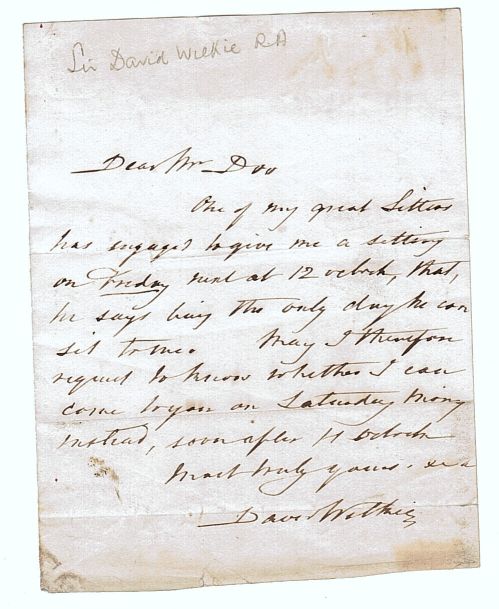 Sir David Wilkie RA
Dear Mr Doo
One of my great Sitters
has engaged to give me a sitting
on Friday next at 12 oclock, that,
he says being the only day he can
sit to me. May I therefore
request to know whether I can
come to you on Saturday
instead, soon after 11 oclock
Most truly yours
David Wilkie